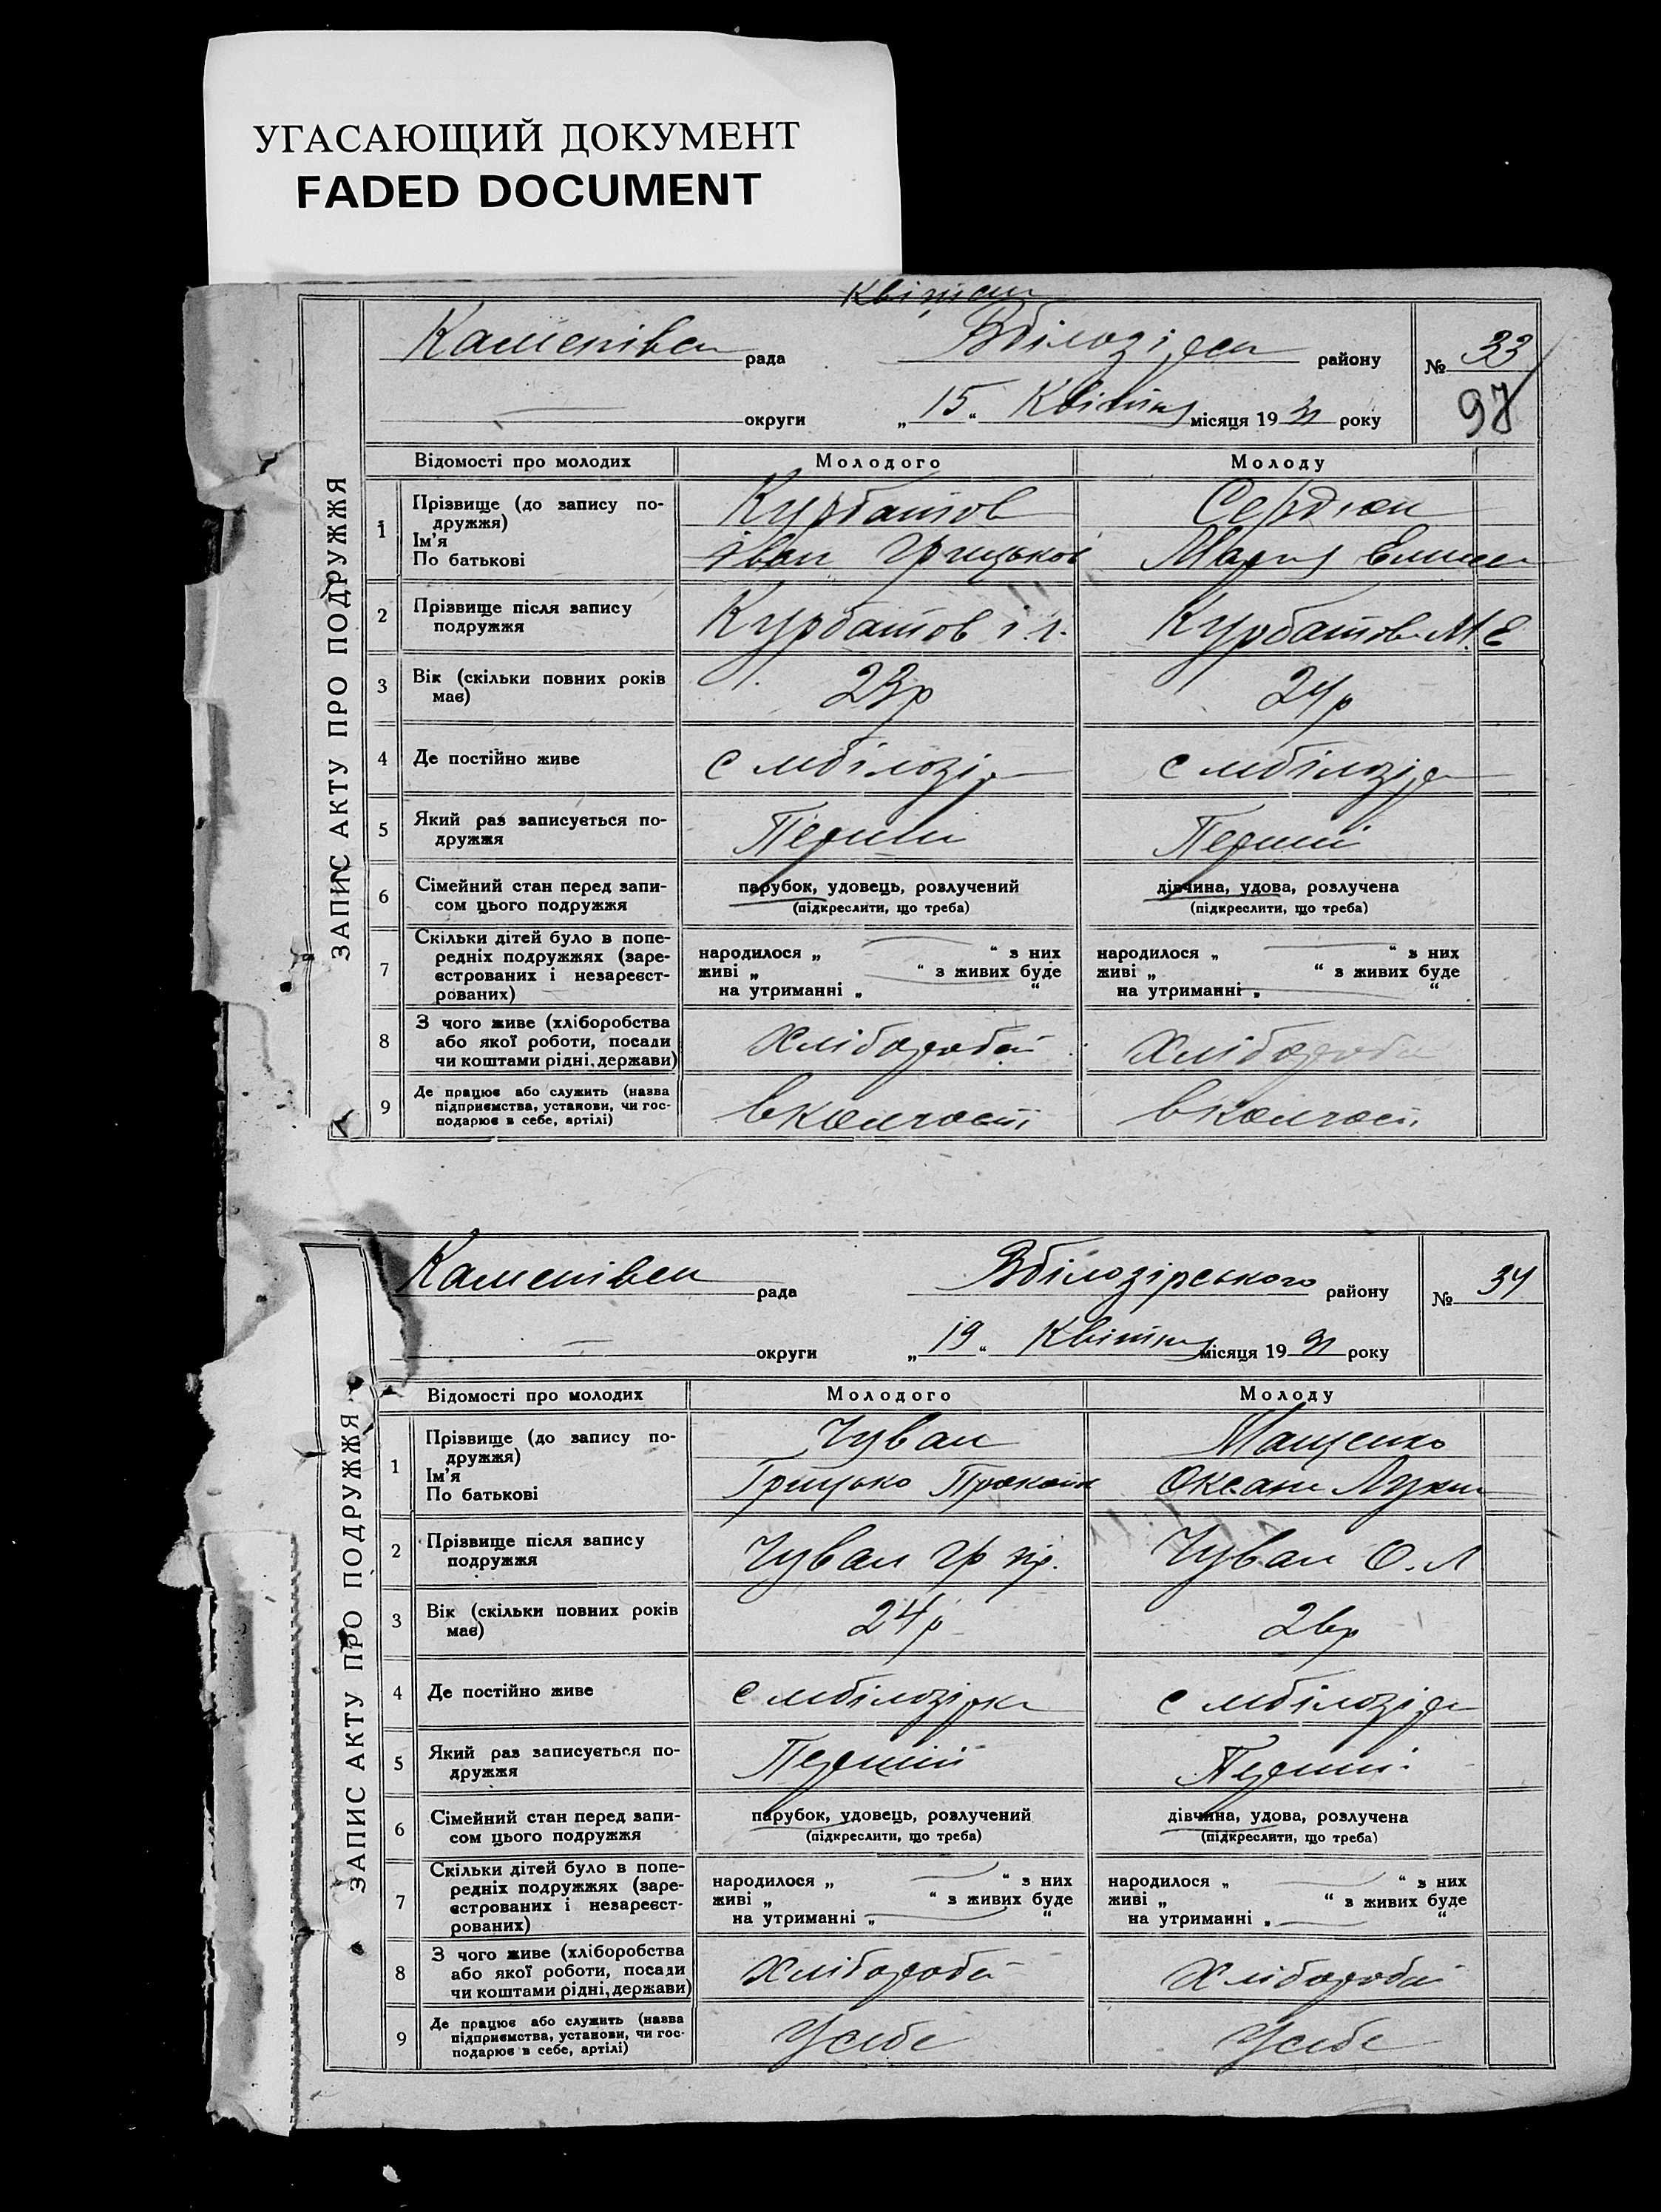 УГАСАЮЩИЙ ДОКУМЕНТ
FADED DOCUMENT
ЗАПИС АКТУ ПРО ПОДРУЖЖЯ
Каменівсь рада Вбілозірсь району № 33
округи „ 15 “ Квітня місяця 19 31 року 97
Відомості про молодих Молодого Молоду
1 Прізвище (до запису по-
дружжя) Курбатов Сердюк
Ім'я
По батькові Іван Грицьков Мария
2 Прізвище після запису
подружжя Курбатов і г. Курбатов М. Е
3 Вік (скільки повних років
має) 23р 24р
4 Де постійно живе с мбілозір с мбілозір
5 Який раз записується по-
дружжя Перший Перший
6 Сімейний стан перед запи-
сом цього подружжя
парубок, удовець, розлучений дівчина, удова, розлучена
(підкреслити, що треба) (підкреслити, що треба)
7 Скільки дітей було в попе-
редніх подружжях (заре-
єстрованих і незареєст-
рованих)
народилося „ “ з них народилося „ “ з них
живі „ “ з живих буде живі „ “ з живих буде
на утриманні „ “ на утриманні „ “
8 З чого живе (хліборобства
або якої роботи, посади
чи коштами рідні, держави) Хлібороб Хлібороб
9 Де працює або служить (назва
підприємства, установи, чи гос-
подарює в себе, артілі)
ЗАПИС АКТУ ПРО ПОДРУЖЖЯ
Каменівсь рада Вбілозірського району № 34
округи „ 19 “ Квітня місяця 19 31 року
Відомості про молодих Молодого Молоду
1 Прізвище (до запису по-
дружжя) Чубан Мащенко
Ім'я
По батькові Грицько Прокоп Оксани Лукии
2 Прізвище після запису
подружжя Чубан Гр пр. Чубан О. Л
3 Вік (скільки повних років
має) 24р 26р
4 Де постійно живе с мбілозірка с мбілозір
5 Який раз записується по-
дружжя Перший Перший
6 Сімейний стан перед запи-
сом цього подружжя
парубок, удовець, розлучений дівчина, удова, розлучена
(підкреслити, що треба) (підкреслити, що треба)
7 Скільки дітей було в попе-
редніх подружжях (заре-
єстрованих і незареєст-
рованих)
народилося „ “ з них народилося „ “ з них
живі „ “ з живих буде живі „ “ з живих буде
на утриманні „ “ на утриманні „ “
8 З чого живе (хліборобства
або якої роботи, посади
чи коштами рідні, держави) Хлібороб Хлібороб
9 Де працює або служить (назва
підприємства, установи, чи гос-
подарює в себе, артілі) У себе У себе